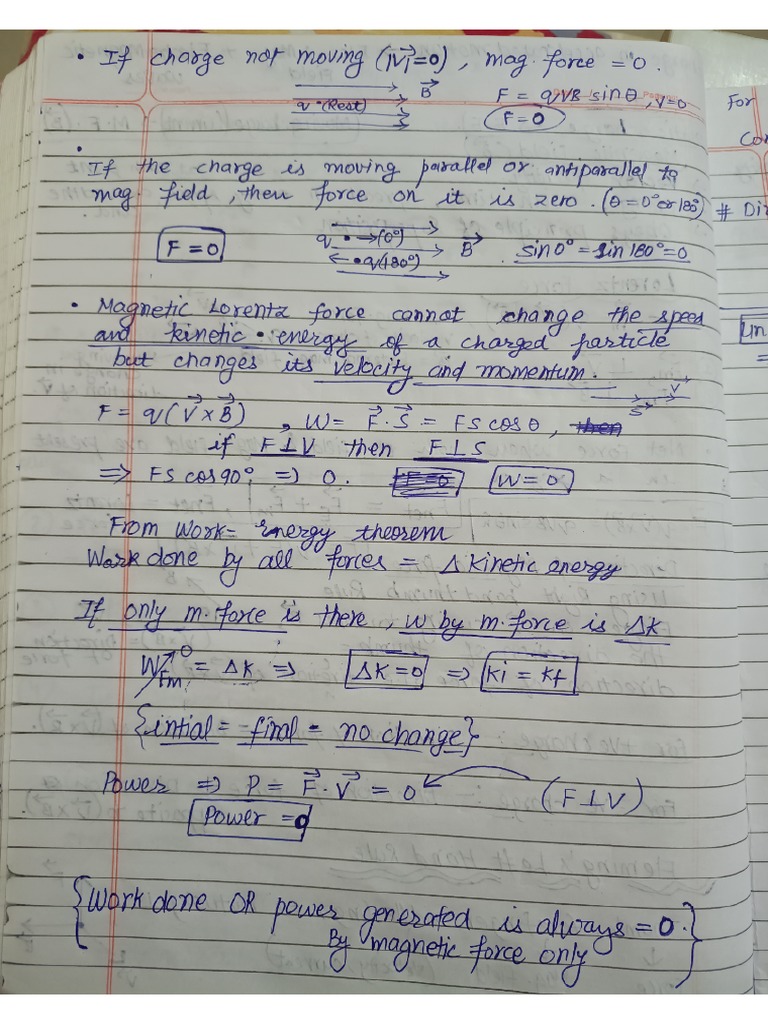 • If charge not moving (|V⃗|=0), mag. force = 0.
B⃗ F = qVB sinθ, V=0
q •(Rest)
F=0
•
If the charge is moving parallel or antiparallel to
mag. field, then force on it is zero. (θ = 0° or 180°)
F = 0 q •→(0°) B⃗ sin0° = sin180° = 0
← •q(180°)
• Magnetic Lorentz force cannot change the speed
and kinetic • energy of a charged particle
but changes its velocity and momentum.
S⃗ V⃗
F = q(V⃗ x B⃗) , W = F⃗.S⃗ = FS cosθ,
if F⊥V then F⊥S
⇒ FS cos90° ⇒ 0. W = 0
From Work-Energy theorem
Work done by all forces = Δ kinetic energy
If only m. force is there, W by m. force is ΔK
W Fm ↗0 = ΔK ⇒ ΔK = 0 ⇒ Ki = Kf
{intial = final = no change}
Power ⇒ P = F⃗.V⃗ = 0 (F⊥V)
Power = 0
{Work done OR power generated is always = 0.
By magnetic force only}
For
Con
# Dir
Lin
=